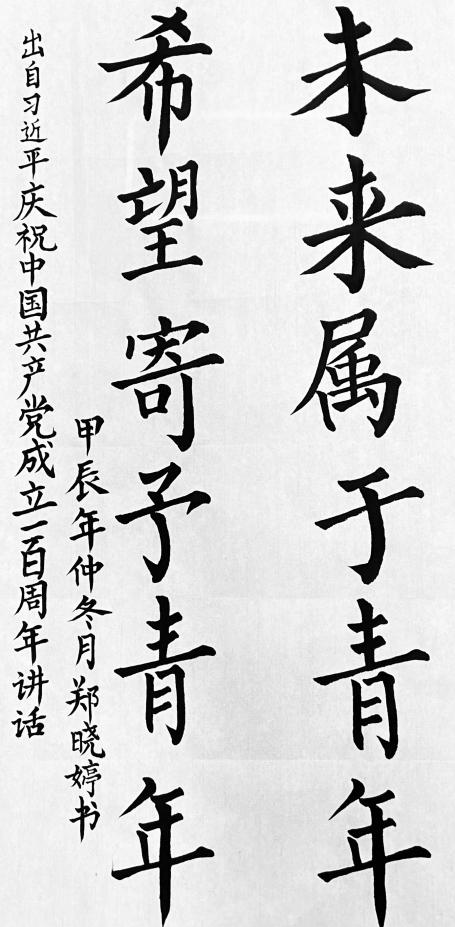 未来属于青年
希望寄予青年
甲辰年仲冬月郑晓婷书
出自习近平庆祝中国共产党成立一百周年讲话